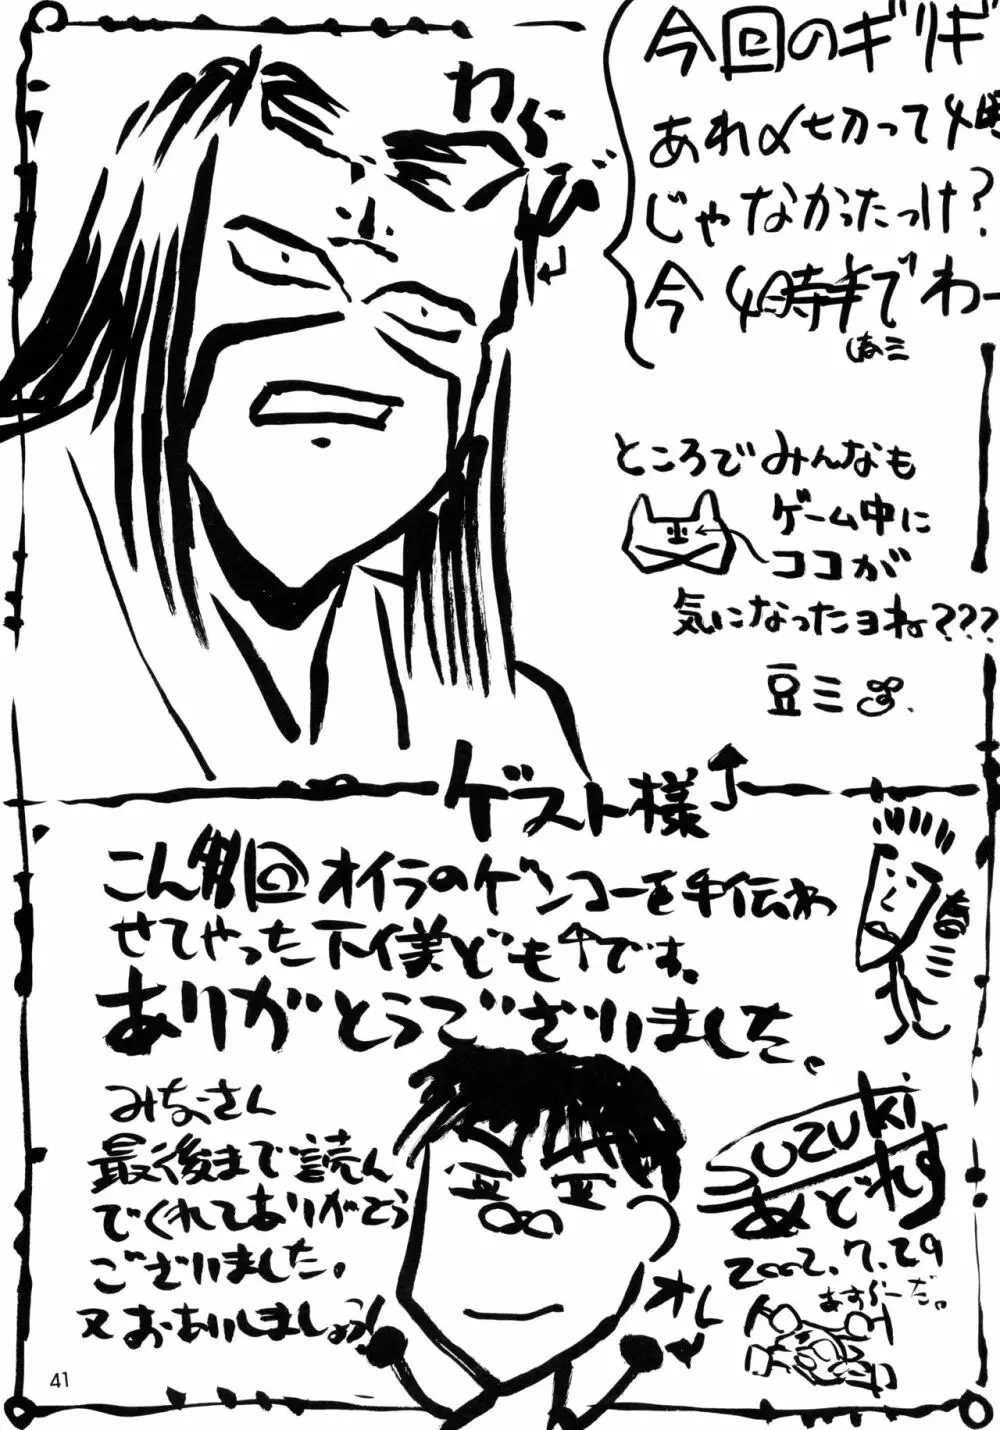 わらび
今回のギリギ
あれ〆切って4時
じゃなかったっけ?
今 4時半でわー
ところでみんなも
ゲーム中に
ココが
気になったヨね???
豆ミ
ゲスト様↑
こん回オイラのゲンコーを手伝わ
せてやった下僕ども↑です。
ありがとうございました。
春ミ
みなさん
最後まで読ん
でくれてありがとう
ございました。
又おあいしましょう!
オレ
SUZUKI
あどれす
2002.7.29
41